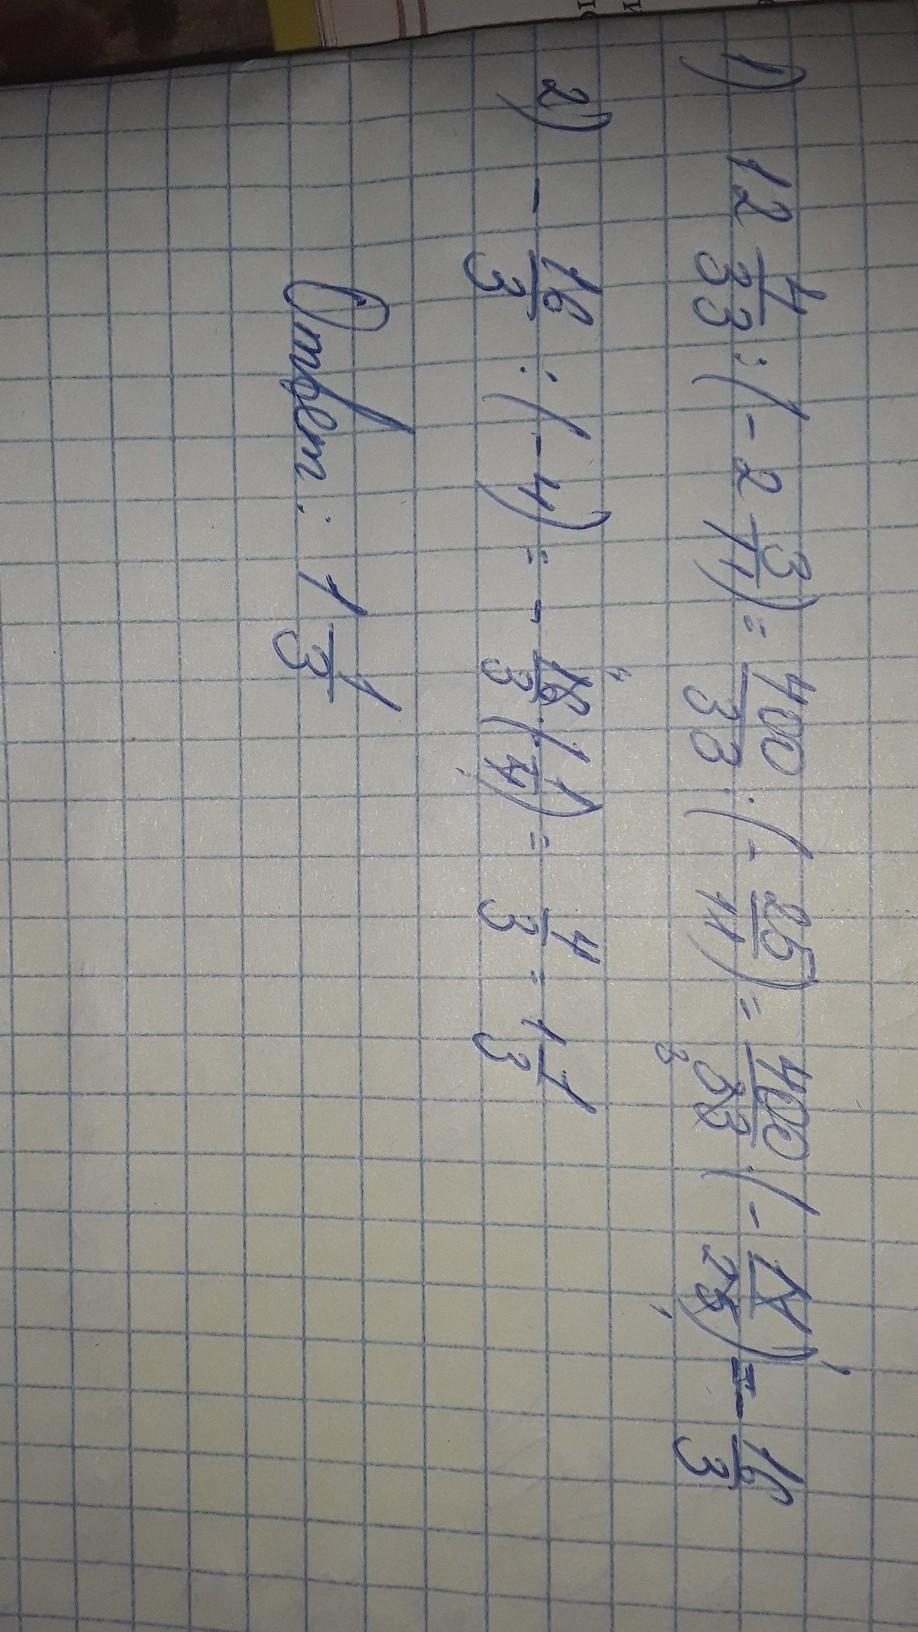 1) 12 4/33 : (- 2 3/11) = 400/33 : (- 25/11) = 400/33 · (- 11/25) = - 16/3
2) - 16/3 : (- 4) = - 16/3 · (- 1/4) = 4/3 = 1 1/3
Ответ: 1 1/3